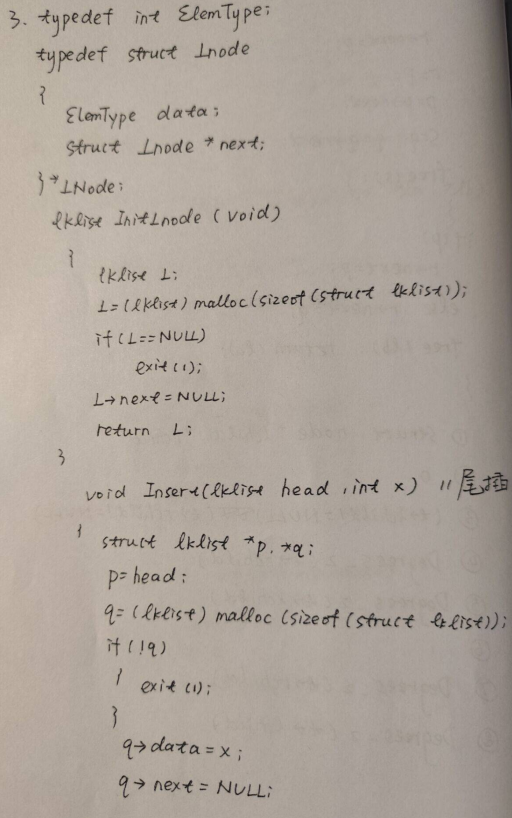 3. typedef int ElemType;
typedef struct Lnode
{
ElemType data;
struct Lnode *next;
}*LNode;
lklist InitLnode (void)
{
lklist L;
L=(lklist) malloc(sizeof(struct lklist));
if(L==NULL)
exit(1);
L→next=NULL;
return L;
}
void Insert(lklist head, int x) // 尾插
{
struct lklist *p, *q;
p=head;
q=(lklist) malloc (sizeof(struct lklist));
if(!q)
{
exit(1);
}
q→data=x;
q→next=NULL;